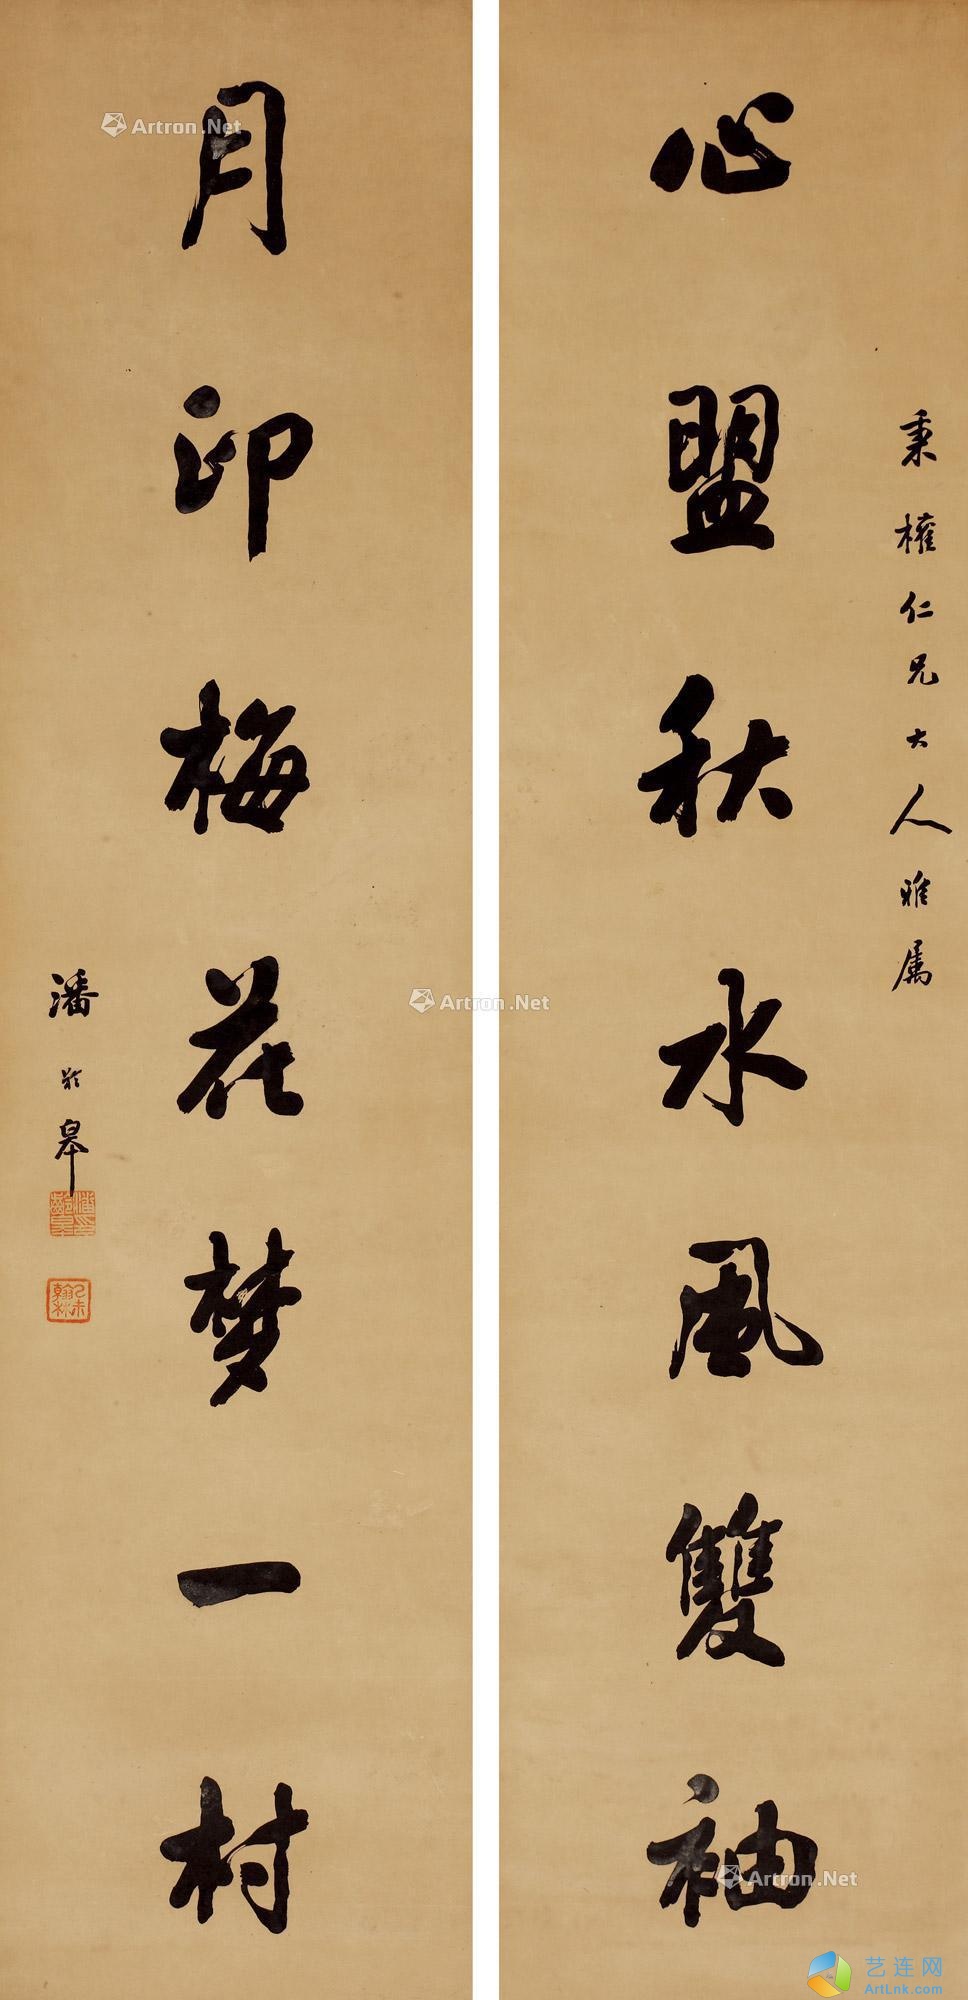 心盟秋水風雙袖
秉權仁兄大人雅属
月印梅花梦一村
潘齡皋
潘齡皋印
乙未翰林
Artron.Net
Artron.Net
Artron.Net
艺连网
ArtLnk.com